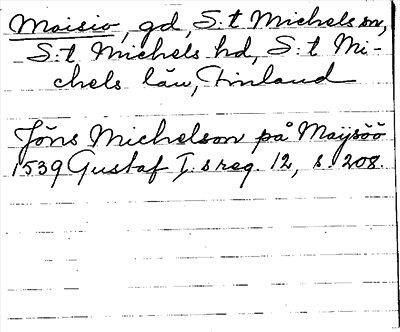 Moisio, gd, S:t Michels sn,
S:t Michels hd, S:t Mi-
chels län, Finland
Jöns Michelson på Maysöö
1539 Gustaf I:s reg. 12, s. 208.